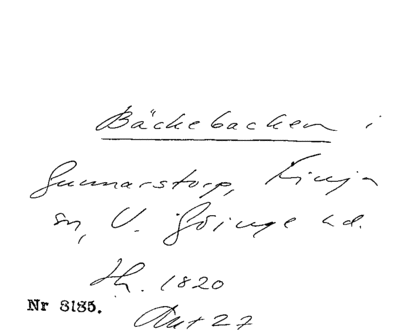 Bäckebacken i
Gunnarstorp, Finja
sn, V. Göinge hd.
Th. 1820
Nr 8185.
Ant 27